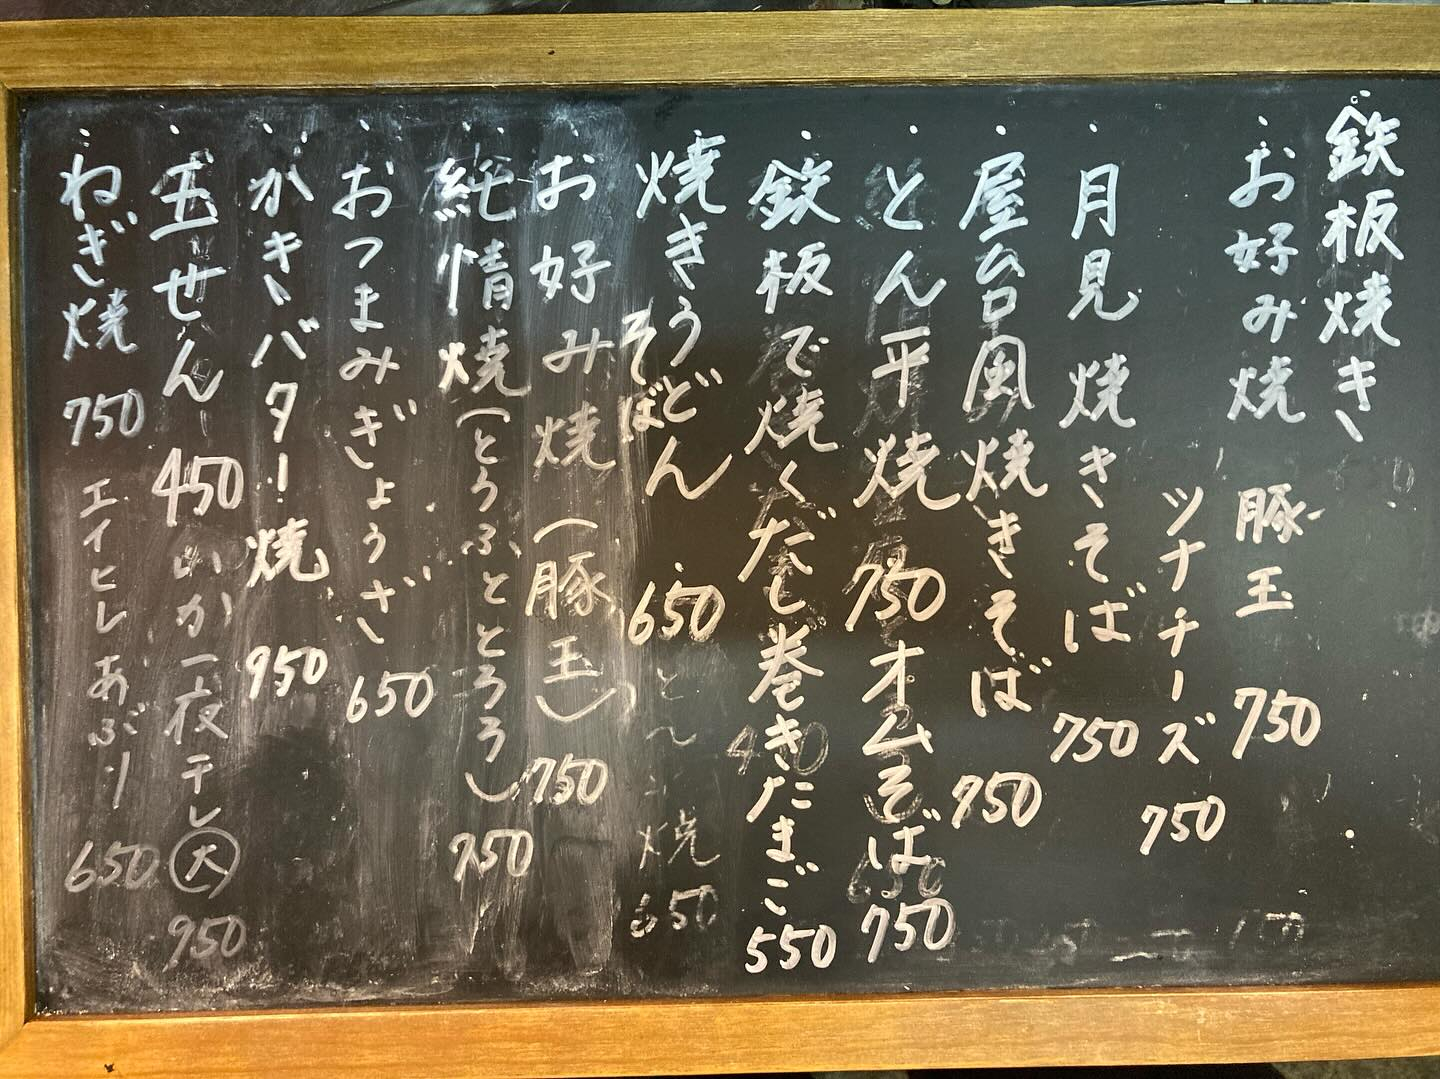 鉄板焼き
・お好み焼 豚玉 750
ツナチーズ 750
・月見焼きそば 750
・屋台風焼きそば 750
・とん平焼 750 オムそば 750
・鉄板で焼くだし巻きたまご 550
・焼きうどん 650 とん平焼 650
そば
・お好み焼(豚玉) 750
・純情焼(とうふととろろ) 750
・おつまみぎょうざ 650
・かきバター焼 950
・玉せん 450 いか一夜干し 大 950
・ねぎ焼 750 エイヒレあぶり 650